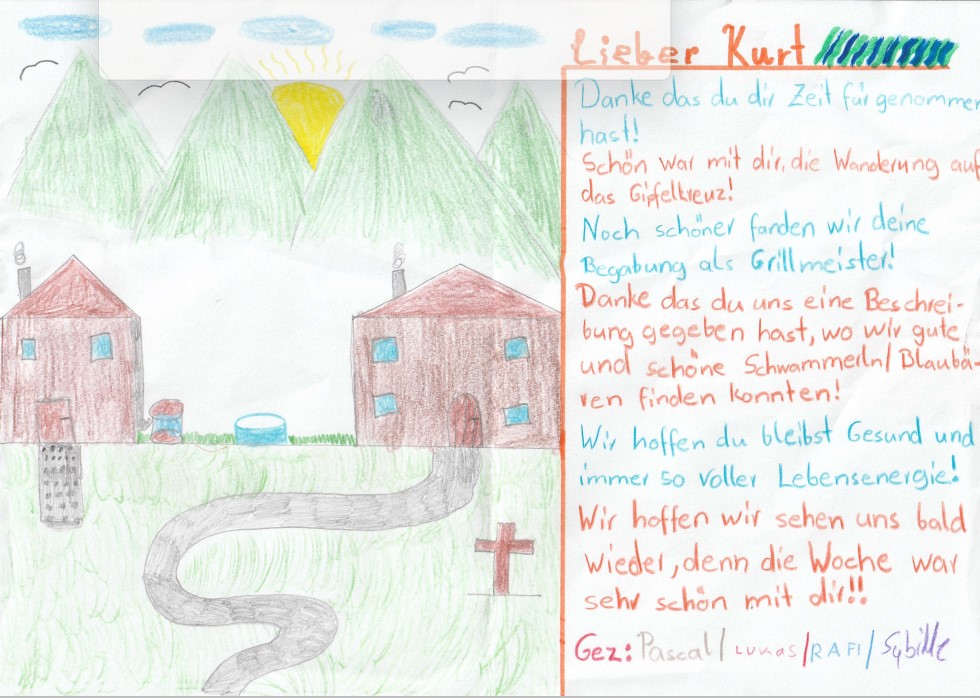 Lieber Kurt
Danke das du dir Zeit für genommen
hast!
Schön war mit dir, die Wanderung auf
das Gipfelkreuz!
Noch schöner fanden wir deine
Begabung als Grillmeister!
Danke das du uns eine Beschrei-
bung gegeben hast, wo wir gute
und schöne Schwammerln/Blaubä-
ren finden konnten!
Wir hoffen du bleibst Gesund und
immer so voller Lebensenergie!
Wir hoffen wir sehen uns bald
wieder, denn die Woche war
sehr schön mit dir!!
Gez: Pascal/Lukas/RAFI/Sybille